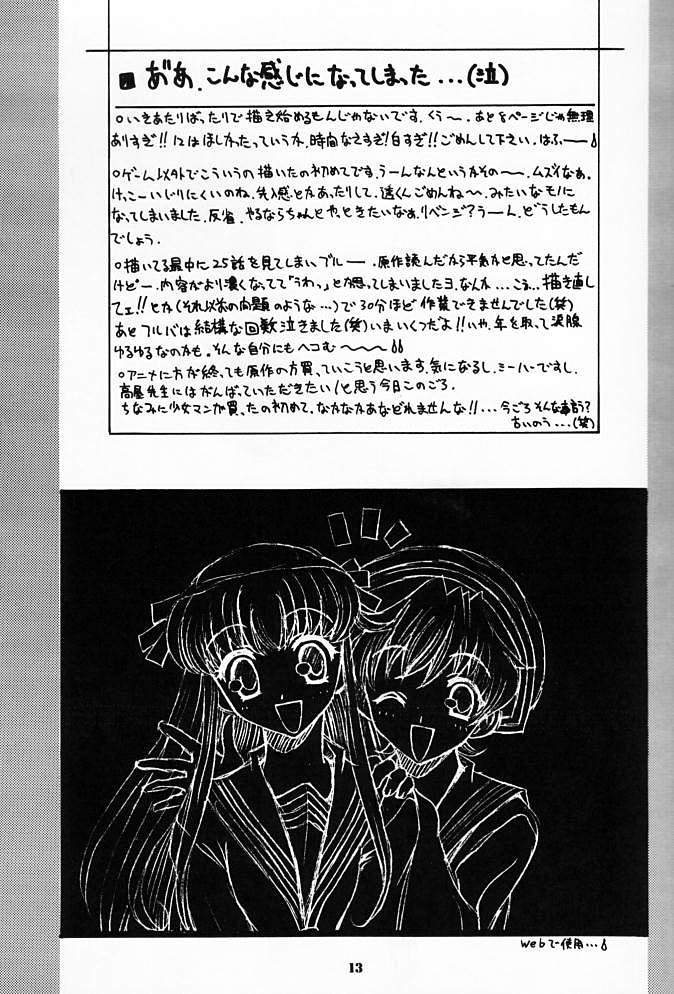 ■ があ、こんな感じになってしまった...(泣)
○いきあたりばったりで描き始めるもんじゃないです。くぅ〜。あと8ページじゃ無理
ありすぎ!!12はほしかったっていうか、時間なさすぎ!白すぎ!!ごめんして下さい。はふ——
○ゲーム以外でこういうの描いたの初めてです。うーんなんというかその〜。ムズイなぁ。
けっこーいじりにくいのね。先入感とかあったりして。透くんごめんね〜。みたいなモノに
なってしまいました。反省。やるならちゃんとやっときたいなぁ。リベンジ?うーん、どうしたもん
でしょう。
○描いてる最中に25話を見てしまい、ブルー—。原作読んだから平気かと思ってたんだ
けどー、内容がより濃くなってて「うわっ」とか思ってしまいましたヨ。なんか...こう...描き直し
てェ!!とか(それ以前の問題のような...)で30分ほど作業できませんでした(笑)
あとフルバは結構な回数泣きました(笑)いまいくつだよ!!いや、年を取って涙腺
ゆるゆるなのかも。そんな自分にもヘコむ〜
○アニメに方が終っても原作の方買っていこうと思います。気になるし。ミーハーですし。
高屋先生にはがんばっていただきたい!と思う今日このごろ。
ちなみに少女マンガ買ったの初めて。なかなかあなどれませんな!!...今ごろそんな事言う?
古いのう...(笑)
Webで使用...
13